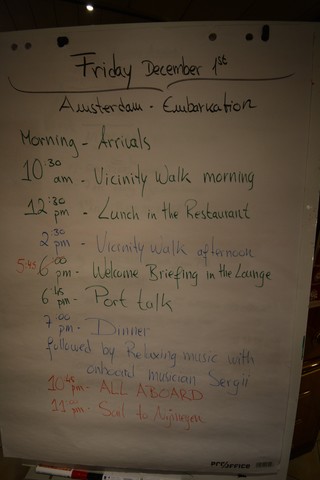 Friday December 1st
Amsterdam - Embarkation
Morning - Arrivals
10:30 am - Vicinity Walk morning
12:30 pm - Lunch in the Restaurant
2:30 pm - Vicinity walk afternoon
5:45 6:00 pm - Welcome Briefing in the Lounge
6:45 pm - Port talk
7:00 pm - Dinner
followed by Relaxing music with
onboard musician Sergii
10:45 pm - ALL ABOARD
11:00 pm - Sail to Nijmegen
PROOFFICE